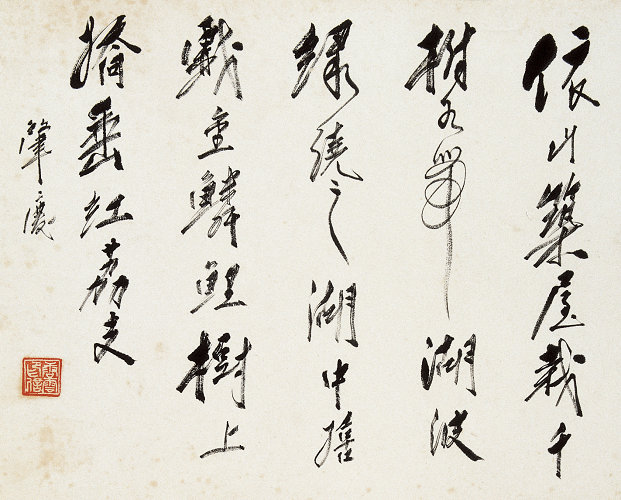 依山築屋栽千
樹九湖波
綠繞之湖中
重鱗鯉樹上
垂紅荔支
肇慶